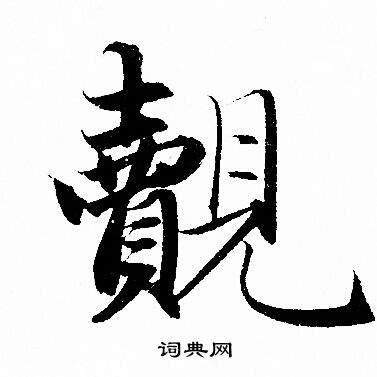 覿
词典网